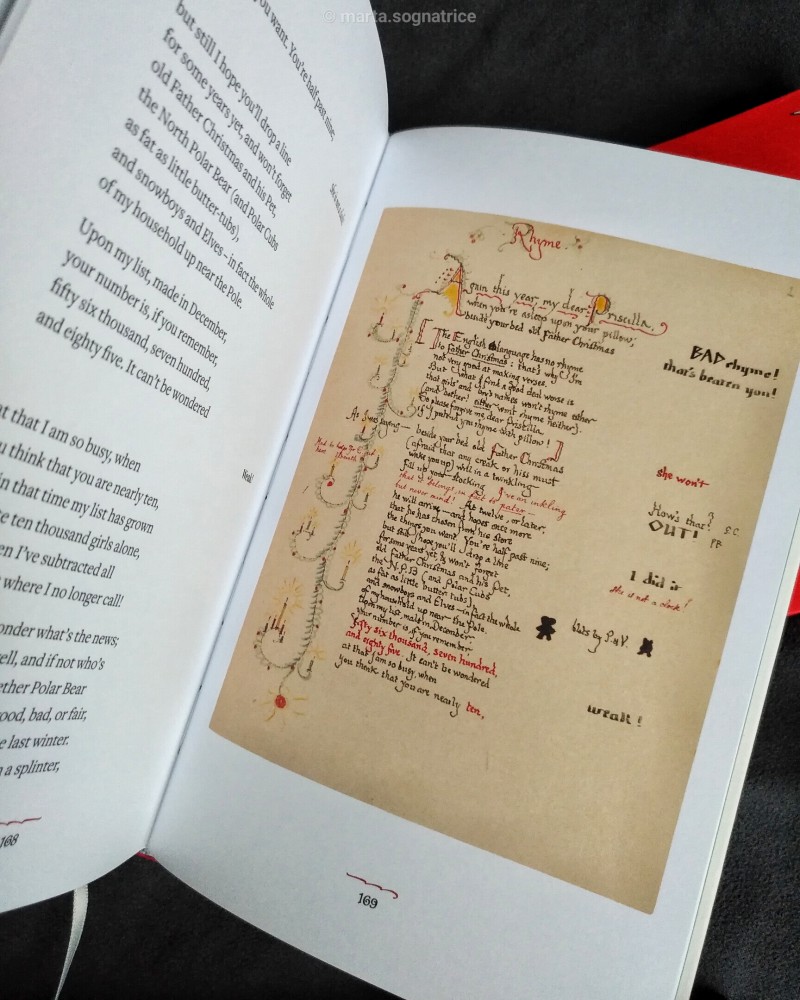 © marta.sognatrice
you want. You're half past nine;
but still I hope you'll drop a line
for some years yet, and won't forget
old Father Christmas and his Pet,
the North Polar Bear (and Polar Cubs
as fat as little butter-tubs),
and snowboys and Elves – in fact the whole
of my household up near the Pole.
Upon my list, made in December,
your number is, if you remember,
fifty six thousand, seven hundred,
and eighty five. It can't be wondered
at that I am so busy, when
u think that you are nearly ten,
in that time my list has grown
te ten thousand girls alone,
en I've subtracted all
where I no longer call!
Weak!
onder what's the news;
ell, and if not who's
ether Polar Bear
ood, bad, or fair,
e last winter.
n a splinter,
168
Rhyme.
Again this year, my dear Priscilla,
when you're asleep upon your pillow;
beside your bed old Father Christmas
BAD rhyme!
that's beaten you!
[The English language has no rhyme
to Father Christmas: that's why I'm
not very good at making verses.
But what I find a good deal worse is
that girls' and boys' names won't rhyme either
(and bother! either won't rhyme neither).
So please forgive me, dear Priscilla,
if I pretend you rhyme with pillow!]
she won't
As I was saying—
beside your bed old Father Christmas
(afraid that any creak or hiss must
wake you up) will in a twinkling
fill up your stocking I've an inkling
that it belongs, in fact to pater—
but never mind! At twelve, or later,
he will arrive—and hopes once more
that he has chosen from his store
the things you want. You're half past nine;
but still I hope you'll drop a line
for some years yet, & won't forget
old Father Christmas and his Pet,
the N.P.B (and Polar Cubs
as fat as little butter tubs)
and snowboys and Elves—in fact the whole
of my household up near the Pole.
Upon my list, made in December
your number is, if you remember
fifty six thousand, seven hundred,
and eighty five. It can't be wondered
at that I am so busy, when
you think that you are nearly ten,
How's that? S.C.
OUT! PB
I did it
She is not a clock!
blots by P & V.
weak!
169